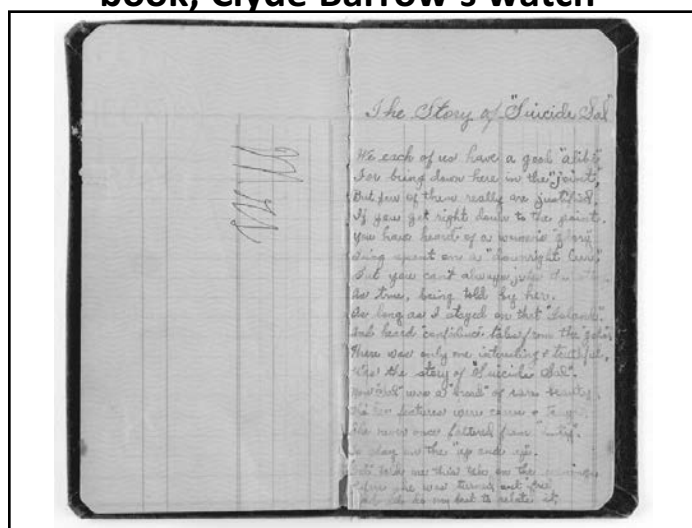 book, Clyde Barrow's watch
The Story of "Suicide Sal"
We each of us have a good "alibi"
For being down here in the "joint",
But few of them really are justified.
If you get right down to the point.
You have heard of a woman's "glory"
Being spent on a "downright cur".
But you can't always judge the
As true, being told by her.
As long as I stayed on that "Island".
And heard "confidence" tales from the "gals"
There was only one interesting & truthful.
Was the story of "Suicide Sal".
Now "Sal" was a "broad" of rare beauty.
her features were coarse &
She never once faltered from "duty".
To play on the "up and up".
told me this tale on the evening
Before she was turned out "free"
do my best to relate it